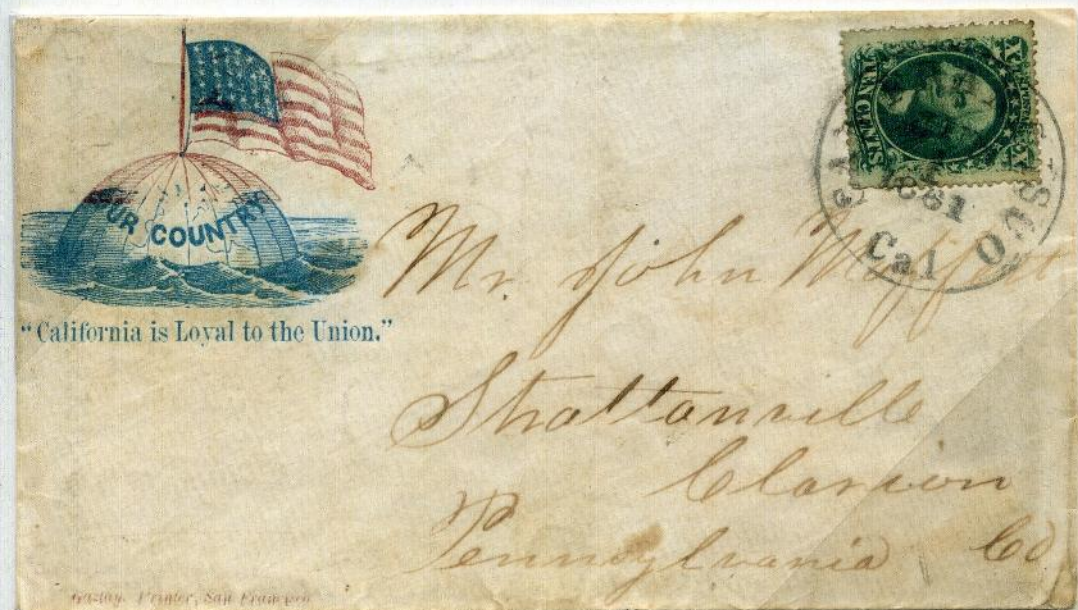 OUR COUNTRY
"California is Loyal to the Union."
TEN CENTS
X X
1861
Cal
Mr. John Moffett
Strattanville
Clarion
Pennsylvania Co
Printer, San Francisco